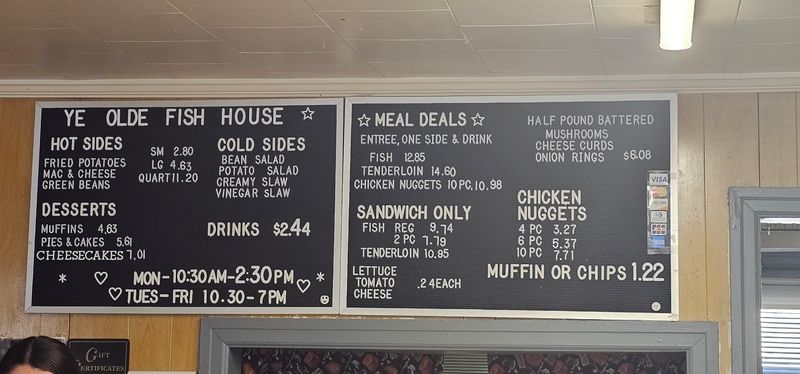 YE OLDE FISH HOUSE ☆
HOT SIDES
FRIED POTATOES
MAC & CHEESE
GREEN BEANS
SM 2.80
LG 4.63
QUART 11.20
COLD SIDES
BEAN SALAD
POTATO SALAD
CREAMY SLAW
VINEGAR SLAW
DESSERTS
MUFFINS 4.63
PIES & CAKES 5.61
CHEESECAKES 7.01
DRINKS $2.44
* ♡ MON-10:30AM-2:30PM ♡ *
♡ TUES-FRI 10.30-7PM
☆ MEAL DEALS ☆
ENTREE, ONE SIDE & DRINK
FISH 12.85
TENDERLOIN 14.60
CHICKEN NUGGETS 10 PC, 10.98
SANDWICH ONLY
FISH REG 9.74
2 PC 7.79
TENDERLOIN 10.95
LETTUCE
TOMATO .24 EACH
CHEESE
HALF POUND BATTERED
MUSHROOMS
CHEESE CURDS
ONION RINGS $6.08
CHICKEN
NUGGETS
4 PC 3.27
6 PC 5.37
10 PC 7.71
MUFFIN OR CHIPS 1.22
VISA
GIFT
CERTIFICATES